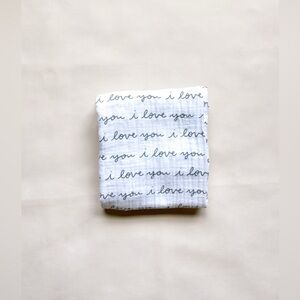 i love you i love
you i love you
i love you i love
love you i love
you i love you
i love you i love
love you i love you